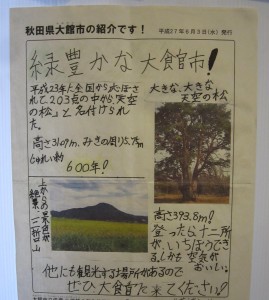 秋田県大館市の紹介です!
平成27年6月3日(水) 発行
緑豊かな大館市!
平成23年に全国から応ぼさ
れて、203点の中から「天空
の松」と名付けられ
た。
高さ
みきの周り
じゅれい約
600年!
大きな、大きな
天空の松
上からの景色が
絶景!
高さ393.8m!
登ったら十二所
が、いちぼうでき
る。しかも空気が
おいしい。
他にも観光する場所があるので
ぜひ大館に来てください!